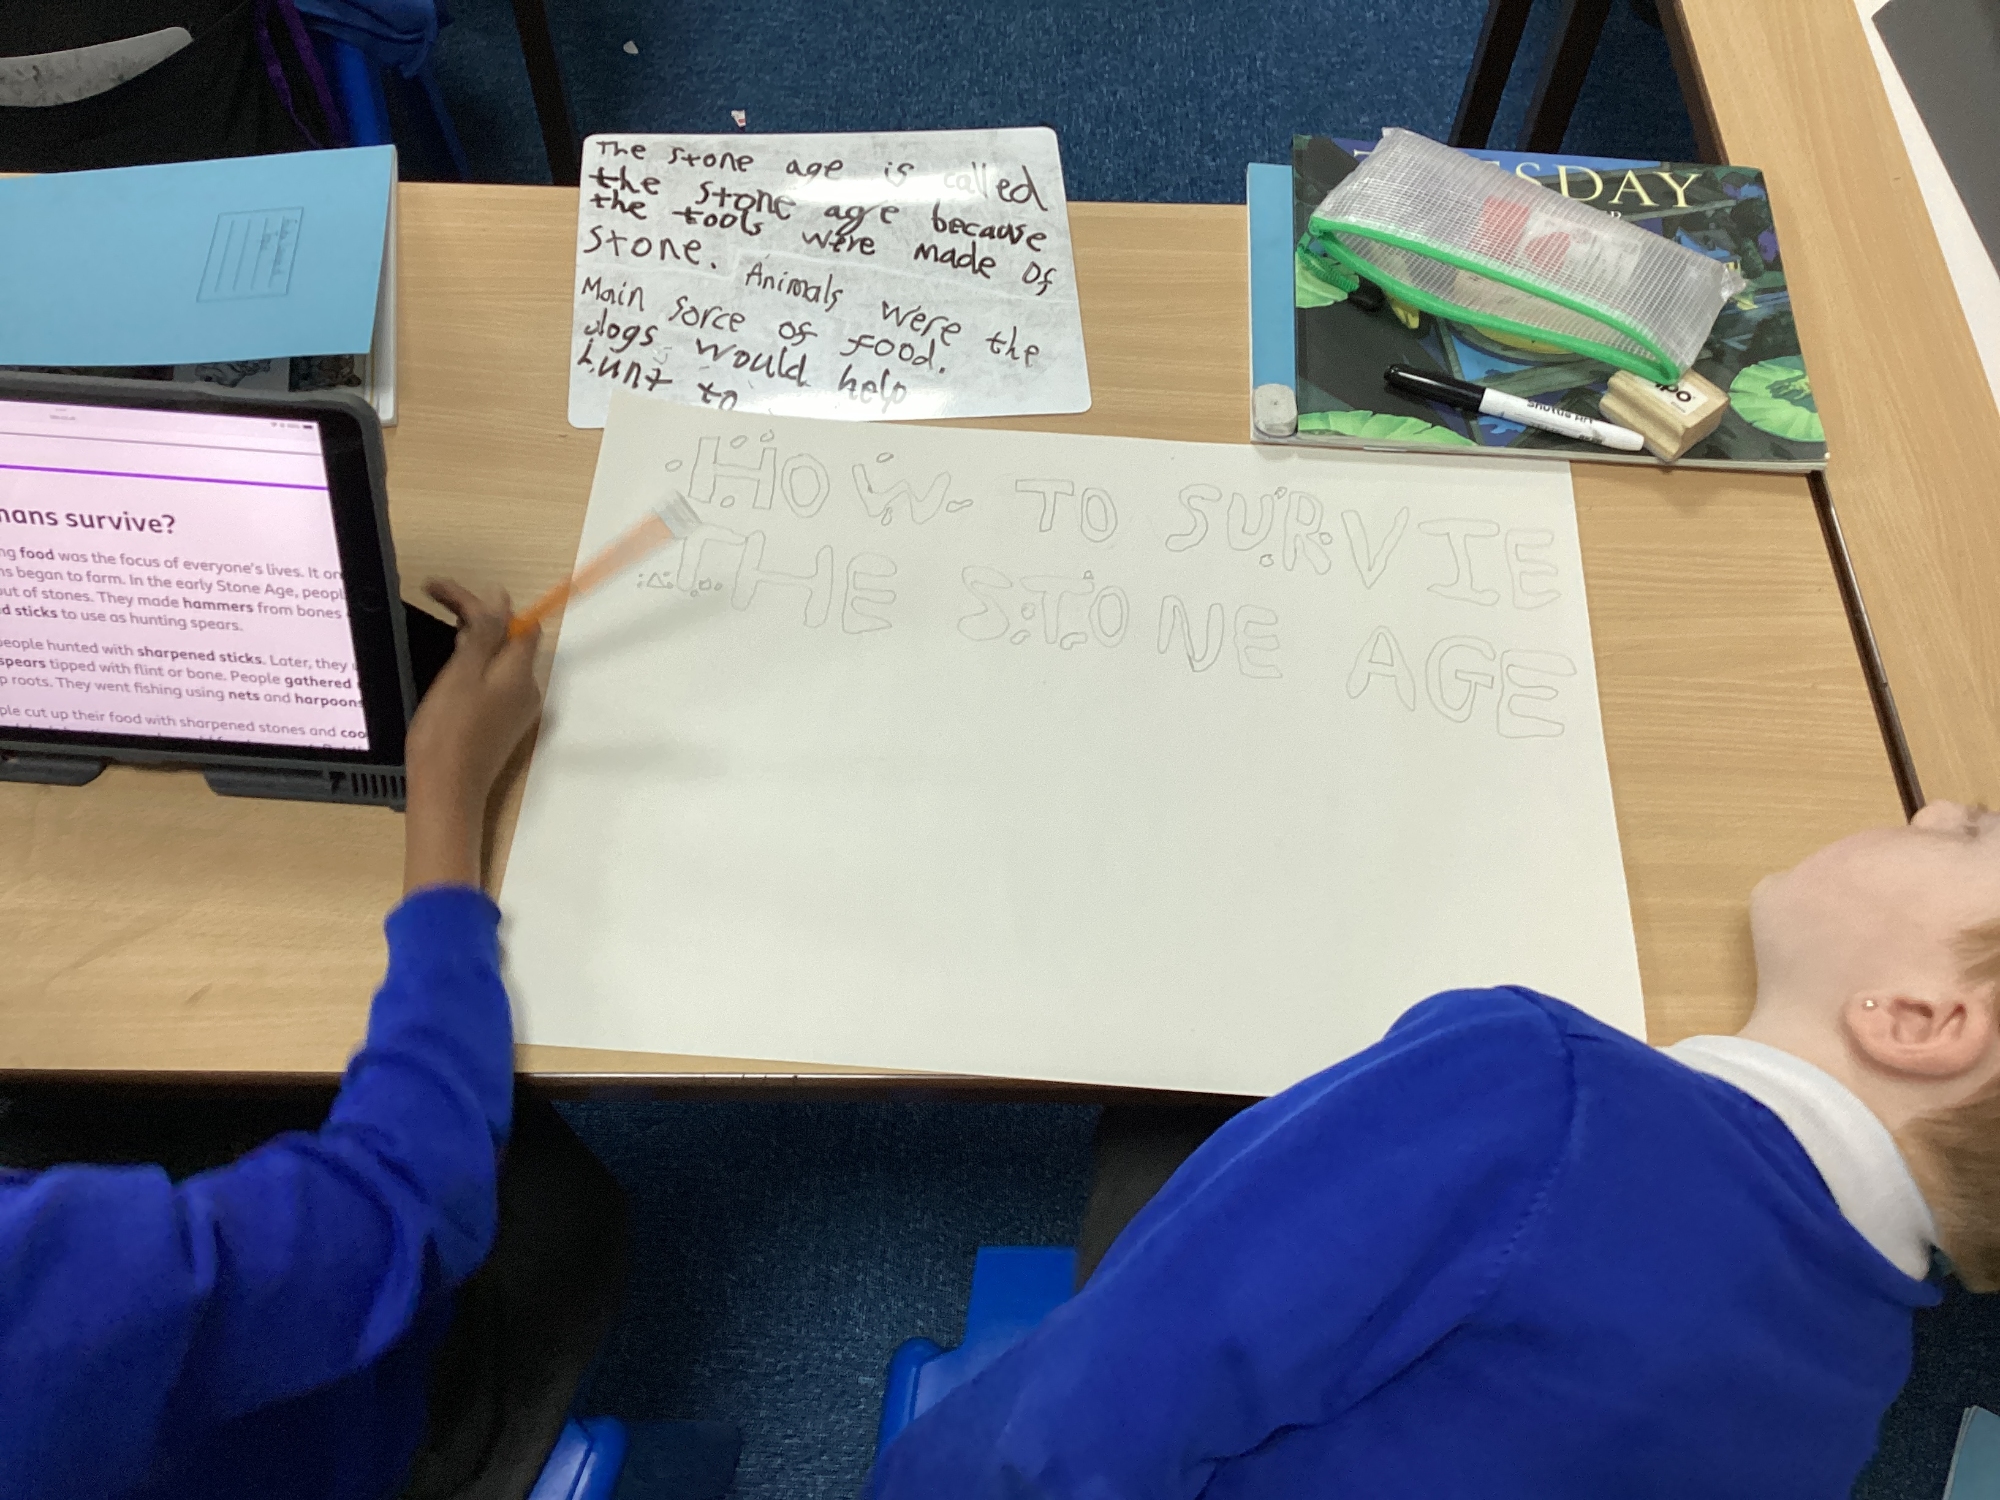 The stone age is called
the stone age because
the tools were made of
stone. Animals were the
Main sorce of food.
dogs would help
hunt to
HOW TO SURVIE
THE STONE AGE
mans survive?
ng food was the focus of everyone's lives. It on
ns began to farm. In the early Stone Age, peopl
out of stones. They made hammers from bones
d sticks to use as hunting spears.
people hunted with sharpened sticks. Later, they
spears tipped with flint or bone. People gathered
p roots. They went fishing using nets and harpoons
ple cut up their food with sharpened stones and coo
SDAY